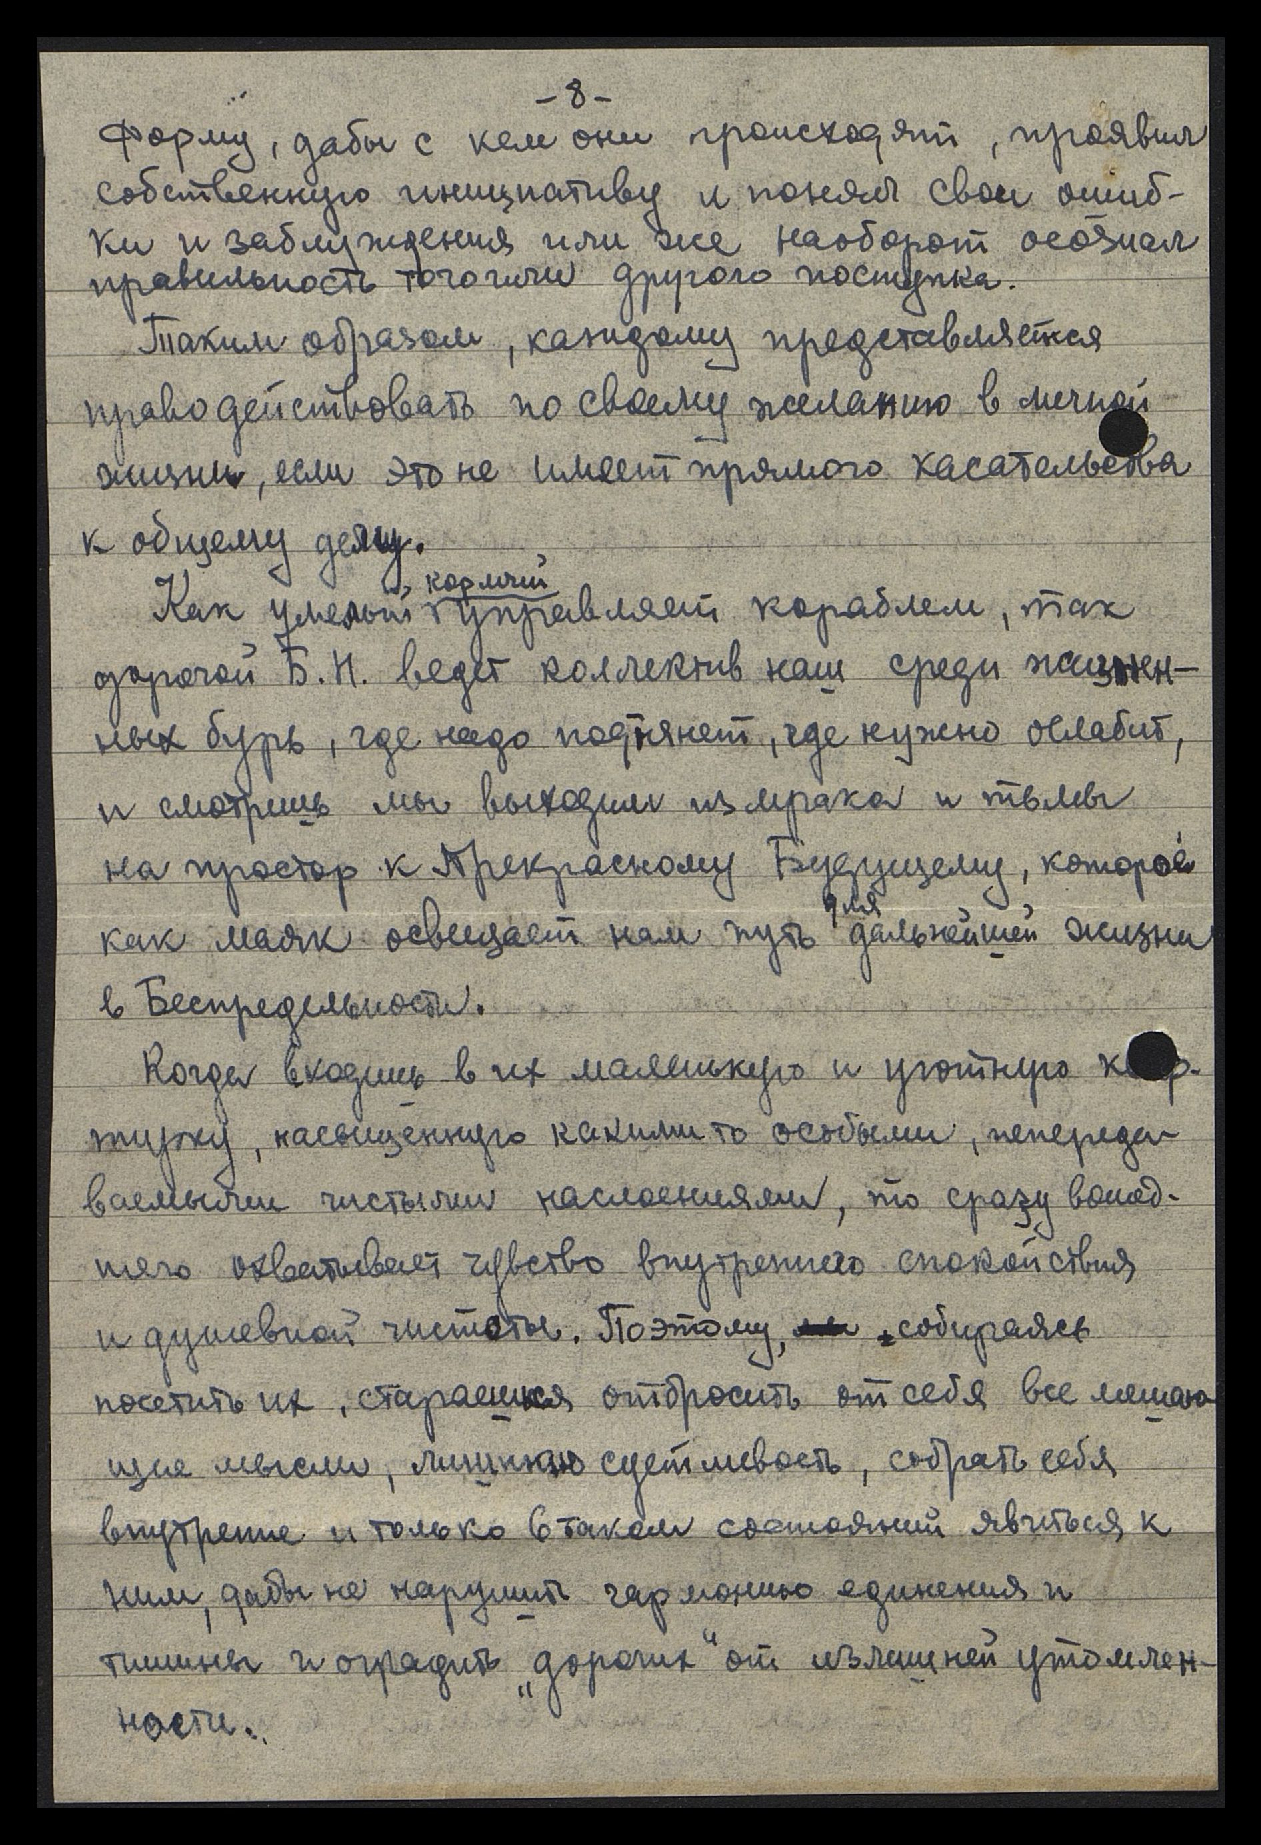 -8-
форму, дабы с кем они происходят, проявил
собственную инициативу и понял свои ошиб-
ки и заблуждения или же наоборот осознал
правильность того или другого поступка.
Таким образом, каждому представляется
право действовать по своему желанию в личной
жизни, если это не имеет прямого касательства
к общему делу.
кормчий
Как умелый управляет кораблем, так
дорогой Б.Н. ведет коллектив наш среди жизнен-
ных бурь, где надо подтянет, где нужно ослабит,
и смотришь мы выходим из мрака и тьмы
на простор к Прекрасному Будущему, которое
для
как маяк освещает нам путь дальнейшей жизни
в Беспредельности.
Когда входишь в их маленькую и уютную
насыщенную какими то особыми, непереда-
ваемыми чистыми наслоениями, то сразу вошед-
шего охватывает чувство внутреннего спокойствия
и душевной чистоты. Поэтому, собираясь
посетить их, стараешься отбросить от себя все мешаю
щие мысли, лишнюю суетливость, собрать себя
внутренне и только в таком состоянии явиться к
ним, дабы не нарушить гармонию единения и
тишины и оградить "дорогих" от излишней утомлен-
ности.